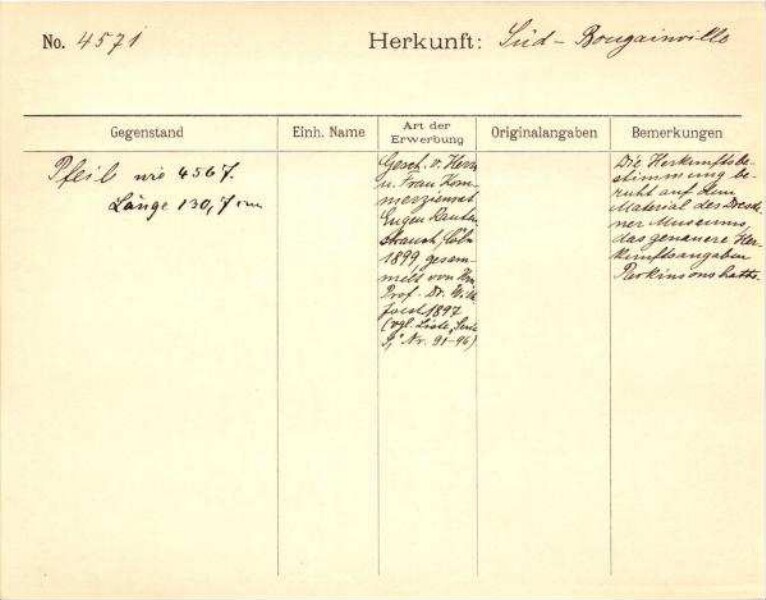 No. 4571
Herkunft: Süd - Bougainville
Gegenstand
Einh. Name
Art der
Erwerbung
Originalangaben
Bemerkungen
Pfeil wie 4567.
Länge 130,7 cm
Gesch. v. Herrn
u. Frau Kom-
merzienrat
Eugen Rauten-
strauch, Cöln
1899 gesam-
melt von Hrn
Prof. Dr. Wilh
Joest 1897
(vgl. Liste, Serie
Nr. 91-96)
Die Herkunftsbe-
stimmung be-
ruht auf dem
Material des Dresde-
ner Museums,
das genauere Her-
kunftsangaben
Parkinsons hatte.